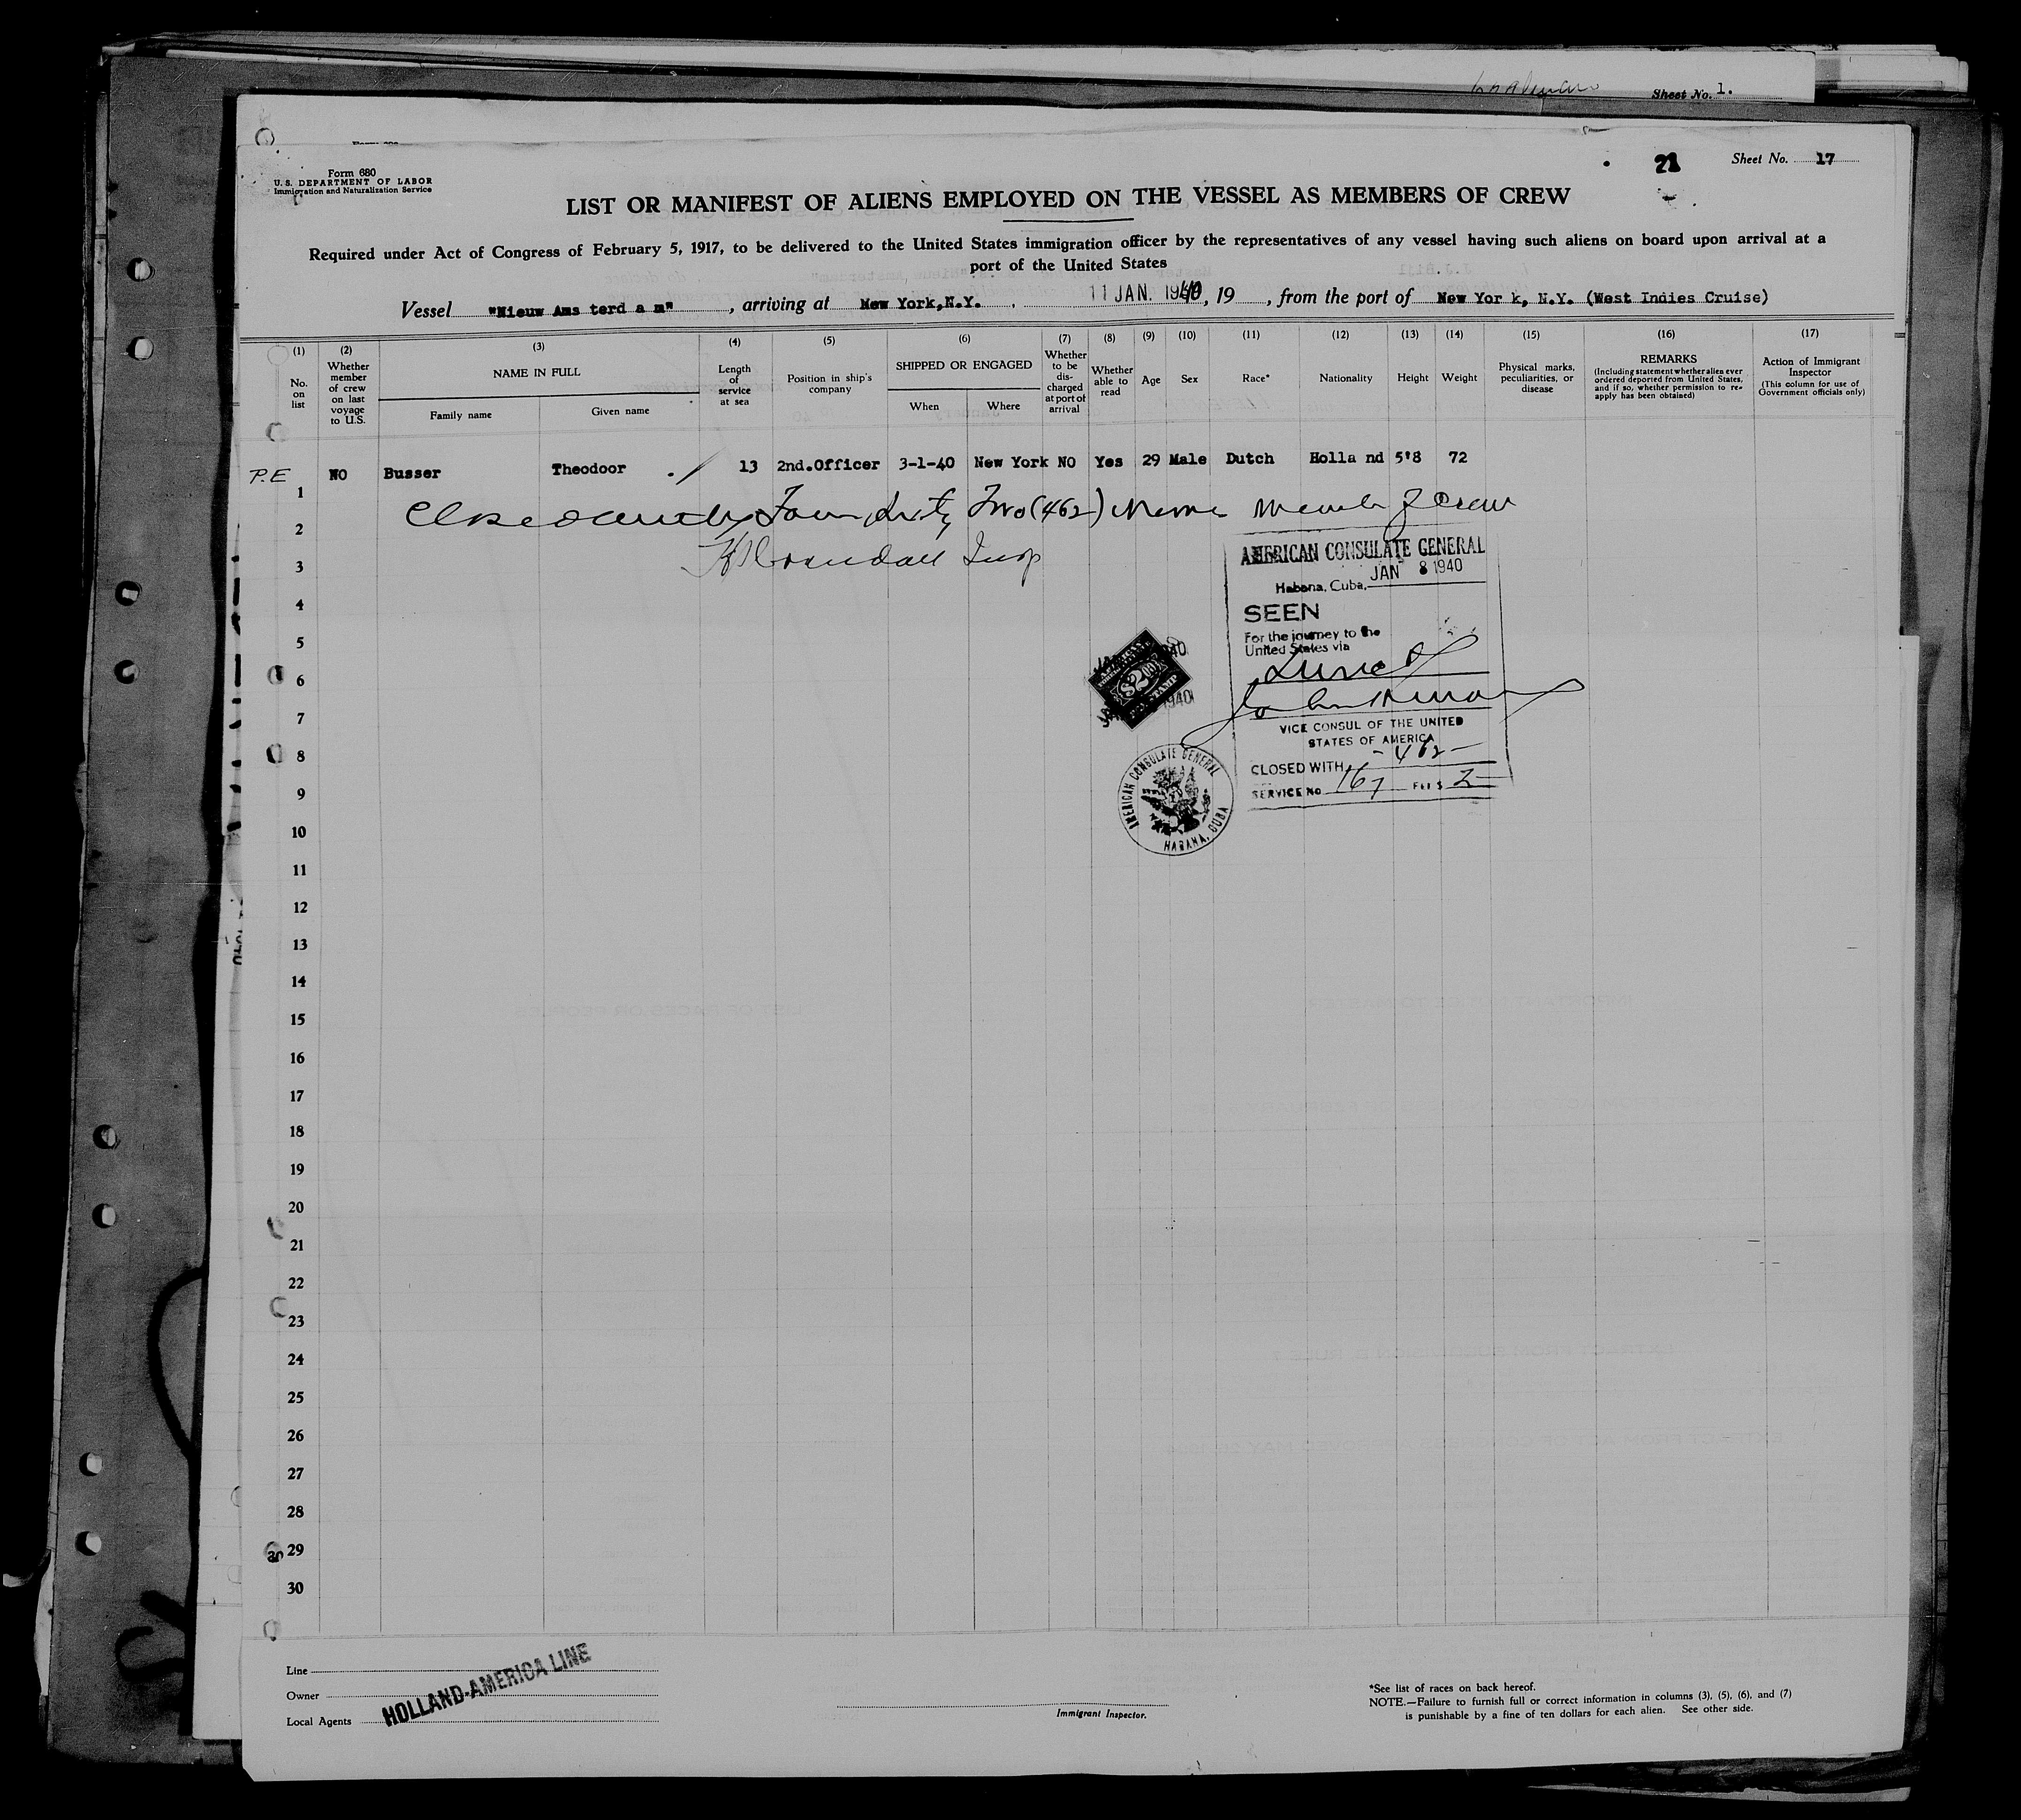 Sheet No. 1.
Form 680
U. S. DEPARTMENT OF LABOR
Immigration and Naturalization Service
21
Sheet No. 17
LIST OR MANIFEST OF ALIENS EMPLOYED ON THE VESSEL AS MEMBERS OF CREW
Required under Act of Congress of February 5, 1917, to be delivered to the United States immigration officer by the representatives of any vessel having such aliens on board upon arrival at a
port of the United States
Vessel "Nieuw Ams terd a m", arriving at New York,N.Y. , 11 JAN. 1940, 19 , from the port of New Yor k, N.Y. (West Indies Cruise)
(1) (2) (3) (4) (5) (6) (7) (8) (9) (10) (11) (12) (13) (14) (15) (16) (17)
No. on list
Whether member of crew on last voyage to U.S.
NAME IN FULL
Family name
Given name
Length of service at sea
Position in ship's company
SHIPPED OR ENGAGED
When
Where
Whether to be dis-charged at port of arrival
Whether able to read
Age
Sex
Race*
Nationality
Height
Weight
Physical marks, peculiarities, or disease
REMARKS
(Including statement whether alien ever ordered deported from United States, and if so, whether permission to re-apply has been obtained)
Action of Immigrant Inspector
(This column for use of Government officials only)
P.E NO Busser Theodoor 13 2nd.Officer 3-1-40 New York NO Yes 29 Male Dutch Holla nd 5'8 72
1
Closed with Four Sixty Two (462) Names Member of Crew
2
Insp
3
AMERICAN CONSULATE GENERAL
Habana, Cuba, JAN 8 1940
4
SEEN
5
For the journey to the
United States via
6
Direct
7
VICE CONSUL OF THE UNITED
STATES OF AMERICA
8
CLOSED WITH -462-
SERVICE No. 167 FEE $ 2-
$2
AMERICAN CONSULATE GENERAL
HABANA, CUBA
9
10
11
12
13
14
15
16
17
18
19
20
21
22
23
24
25
26
27
28
29
30
30
Line
Owner
Local Agents
HOLLAND-AMERICA LINE
Immigrant Inspector.
*See list of races on back hereof.
NOTE.—Failure to furnish full or correct information in columns (3), (5), (6), and (7)
is punishable by a fine of ten dollars for each alien. See other side.